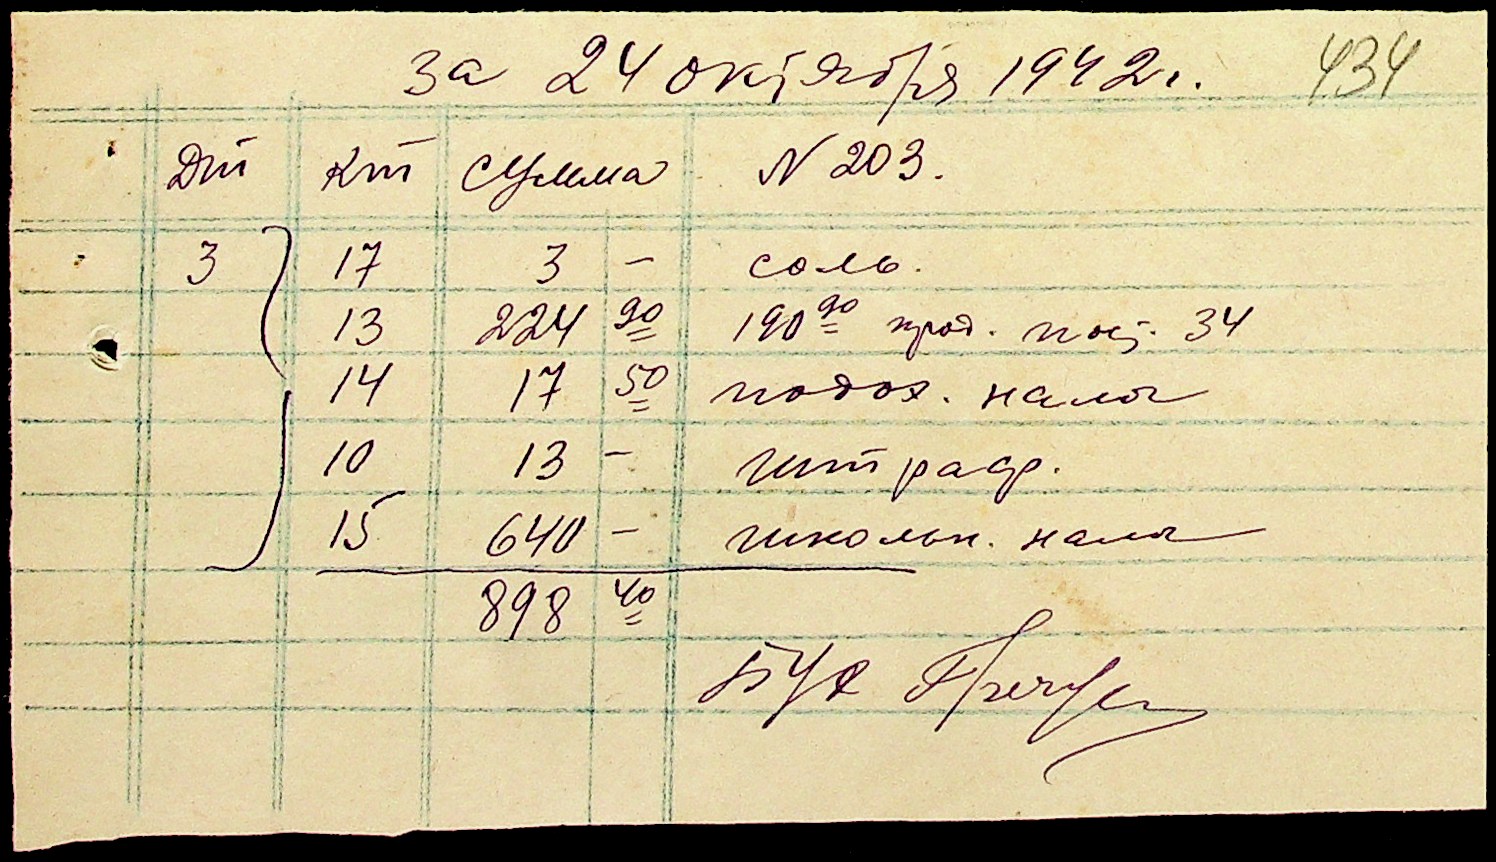 за 24 октября 1942 г. 434
Дт Кт Сумма N 203.
3 17 3 – соль.
13 224 90 190 90 прод. пос. 34
14 17 50 подох. налог
10 13 – штраф.
15 640 – школьн. налог
898 40
Бух